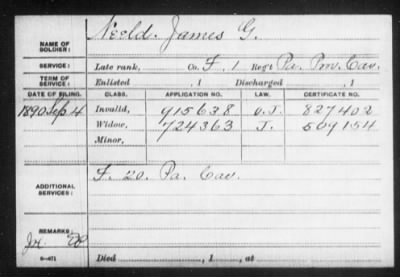 NAME OF SOLDIER: Neeld, James G.
SERVICE: Late rank, Co. F, 1 Reg't Pa. Prov. Cav.
TERM OF SERVICE: Enlisted , 1 Discharged , 1
DATE OF FILING. CLASS. APPLICATION NO. LAW. CERTIFICATE NO.
1890 Sep 4 Invalid, 915638 O.J. 827402
Widow, 724363 J. 509154
Minor,
ADDITIONAL SERVICES: F. 20. Pa. Cav.
REMARKS:
Died , 1 , at